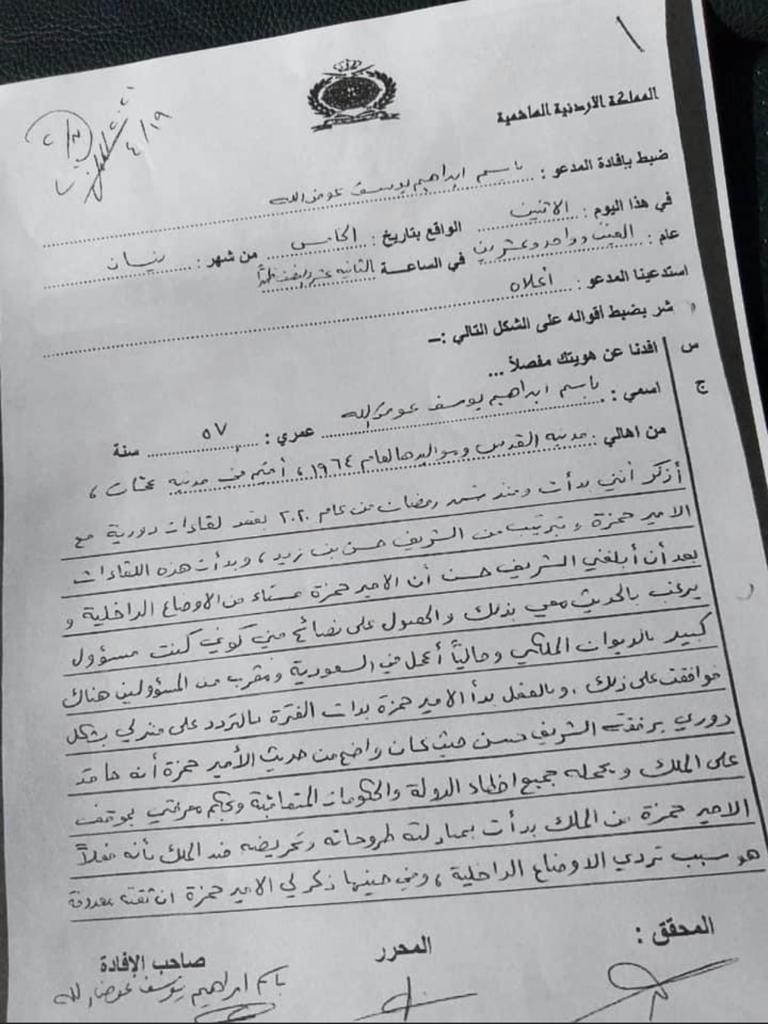 ١
٢٠٢١
٤/١٩
المملكة الاردنية الهاشمية
ضبط بإفادة المدعو : باسم ابراهيم يوسف عوض الله
في هذا اليوم : الاثنين الواقع بتاريخ : الخامس من شهر : نيسان
عام : الفين وواحد وعشرين في الساعة الثانيه عشر والنصف ظهراً
استدعينا المدعو : أعلاه
شر بضبط أقواله على الشكل التالي :-
س افدنا عن هويتك مفصلاً ...
ج اسمي : باسم ابراهيم يوسف عوض الله عمري : ٥٧ سنة
من اهالي : مدينه القدس ومواليدها لعام ١٩٦٤ ، أقيم في مدينه عمان ،
أذكر أنني بدأت ومنذ شهر رمضان من عام ٢٠٢٠ بعقد لقاءات دورية مع
الامير حمزة وبترتيب من الشريف حسن بن زيد ، وبدأت هذه اللقاءات
بعد أن أبلغني الشريف حسن أن الامير حمزة مستاء من الاوضاع الداخلية و
يرغب بالحديث معي بذلك والحصول على نصائح مني كوني كنت مسؤول
كبير بالديوان الملكي وحالياً أعمل في السعودية ومقرب من المسؤولين هناك
فوافقت على ذلك ، وبالفعل بدأ الامير حمزة بذات الفترة بالتردد على منزلي بشكل
دوري برفقة الشريف حسن حيث كان واضح من حديث الأمير حمزة أنه حاقد
على الملك ويحمله جميع اخطاء الدولة والحكومات المتعاقبة وبحكم معرفتي بموقف
الامير حمزة من الملك بدأت بمبادلته طروحاته وتحريضه ضد الملك بأنه فعلاً
هو سبب تردي الاوضاع الداخلية ، وفي حينها ذكر لي الامير حمزة ان ثقته معدومة
المحقق : المحرر صاحب الإفادة
باسم ابراهيم يوسف عوض الله